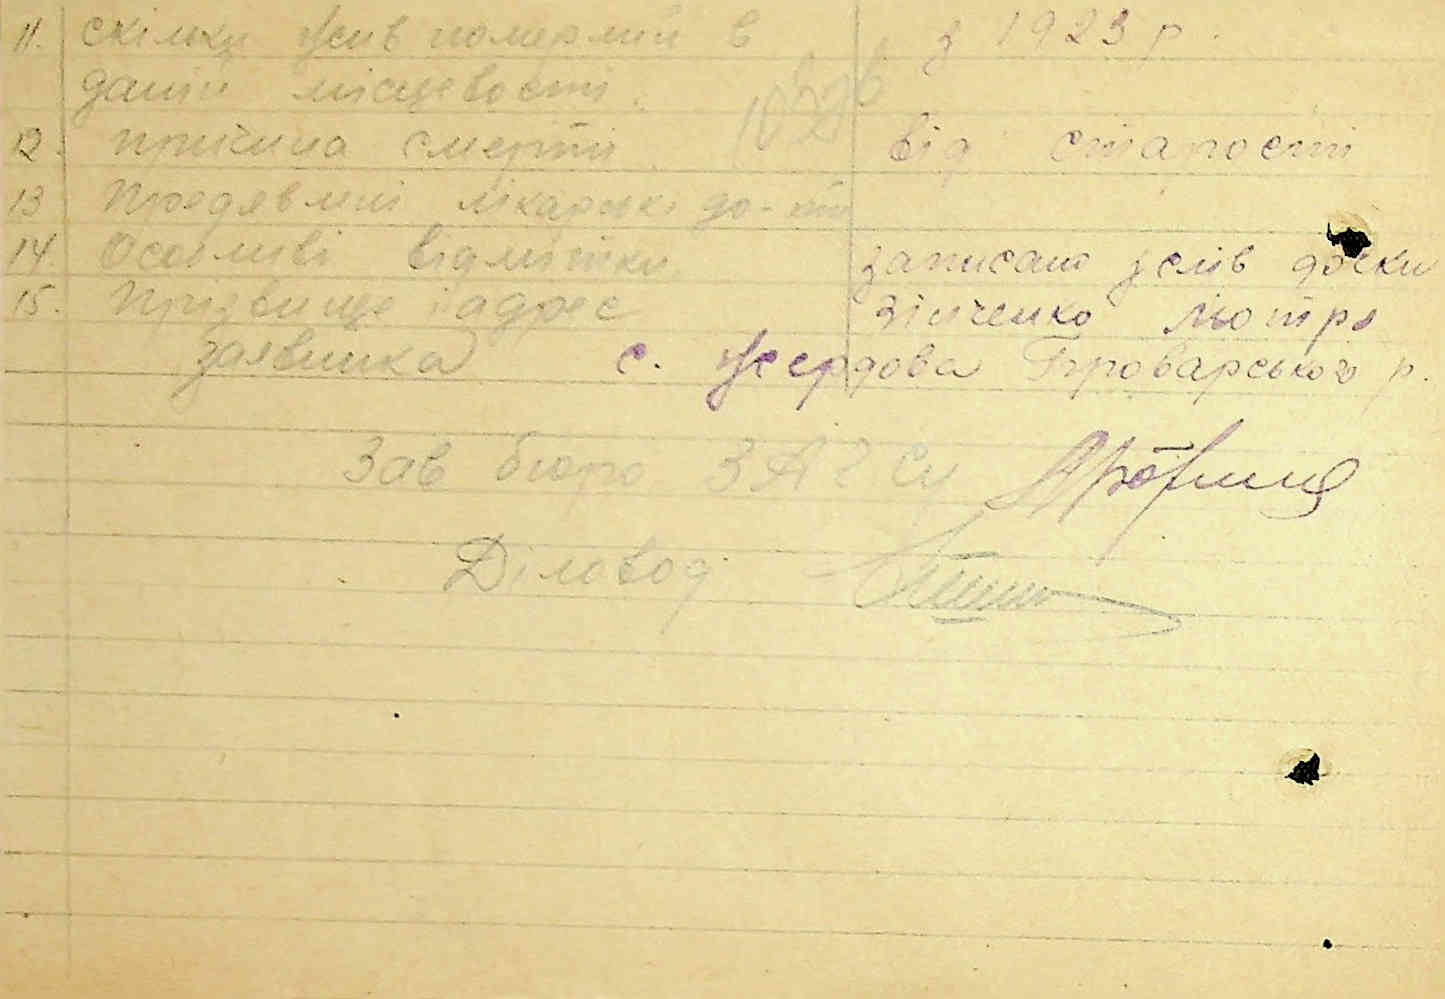 11. Скільки жив померлий в з 1923 р.
даній місцевості
12. Причина смерті від старости
13 Предявлені лікарські до-ти
14. Особливі відмітки записано зі слів дочки
15. Прізвище і адрес Зінченко
заявника с. Жердова Броварського р.
Зав бюро ЗАГСу
Діловод